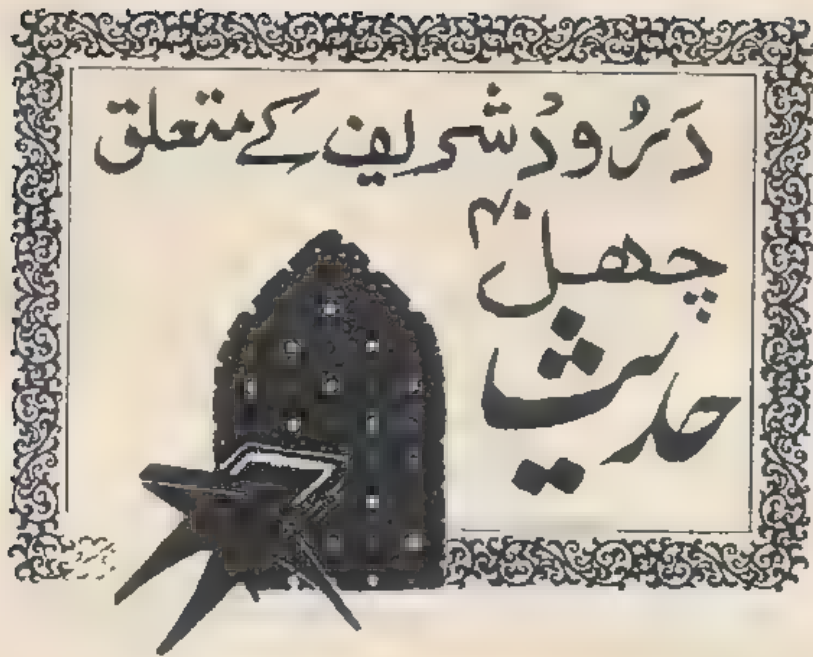 دَرُودُ شریف کے متعلق
۴۰
چہل
حدیث